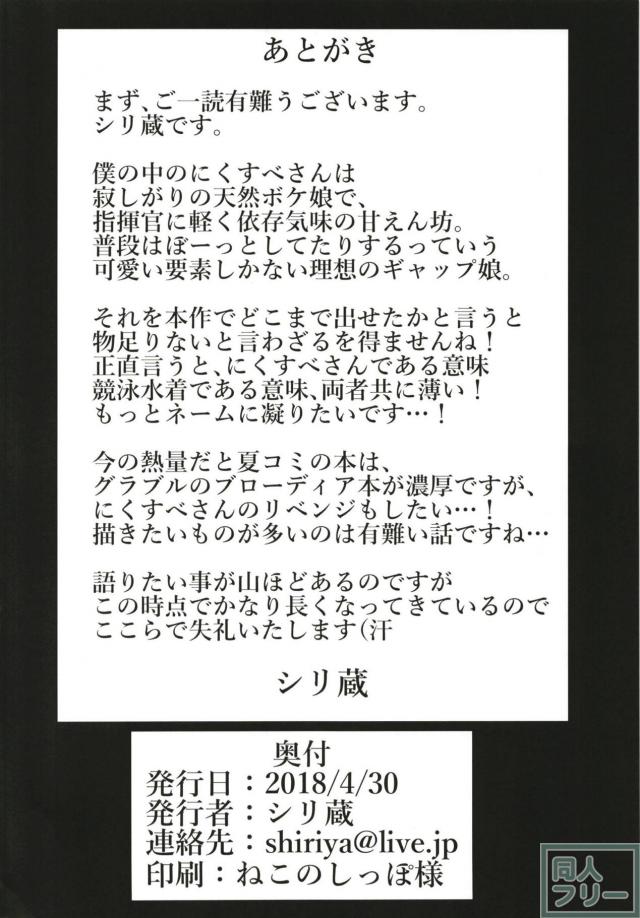 あとがき
まず、ご一読有難うございます。
シリ蔵です。
僕の中のにくすべさんは
寂しがりの天然ボケ娘で、
指揮官に軽く依存気味の甘えん坊。
普段はぼーっとしてたりするっていう
可愛い要素しかない理想のギャップ娘。
それを本作でどこまで出せたかと言うと
物足りないと言わざるを得ませんね！
正直言うと、にくすべさんである意味
競泳水着である意味、両者共に薄い！
もっとネームに凝りたいです…！
今の熱量だと夏コミの本は、
グラブルのブローディア本が濃厚ですが、
にくすべさんのリベンジもしたい…！
描きたいものが多いのは有難い話ですね…
語りたい事が山ほどあるのですが
この時点でかなり長くなってきているので
ここらで失礼いたします（汗
シリ蔵
奥付
発行日：2018/4/30
発行者：シリ蔵
連絡先：shiriya@live.jp
印刷：ねこのしっぽ様
同人
フリー